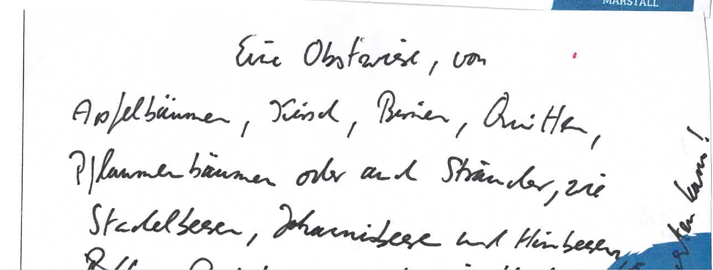 MARSTALL
Eine Obstwiese, von
Apfelbäumen, Kirsch, Birnen, Quitten,
Pflaumenbäumen oder auch Sträucher, wie
Stachelbeeren, Johannisbeere und Himbeeren
kann!